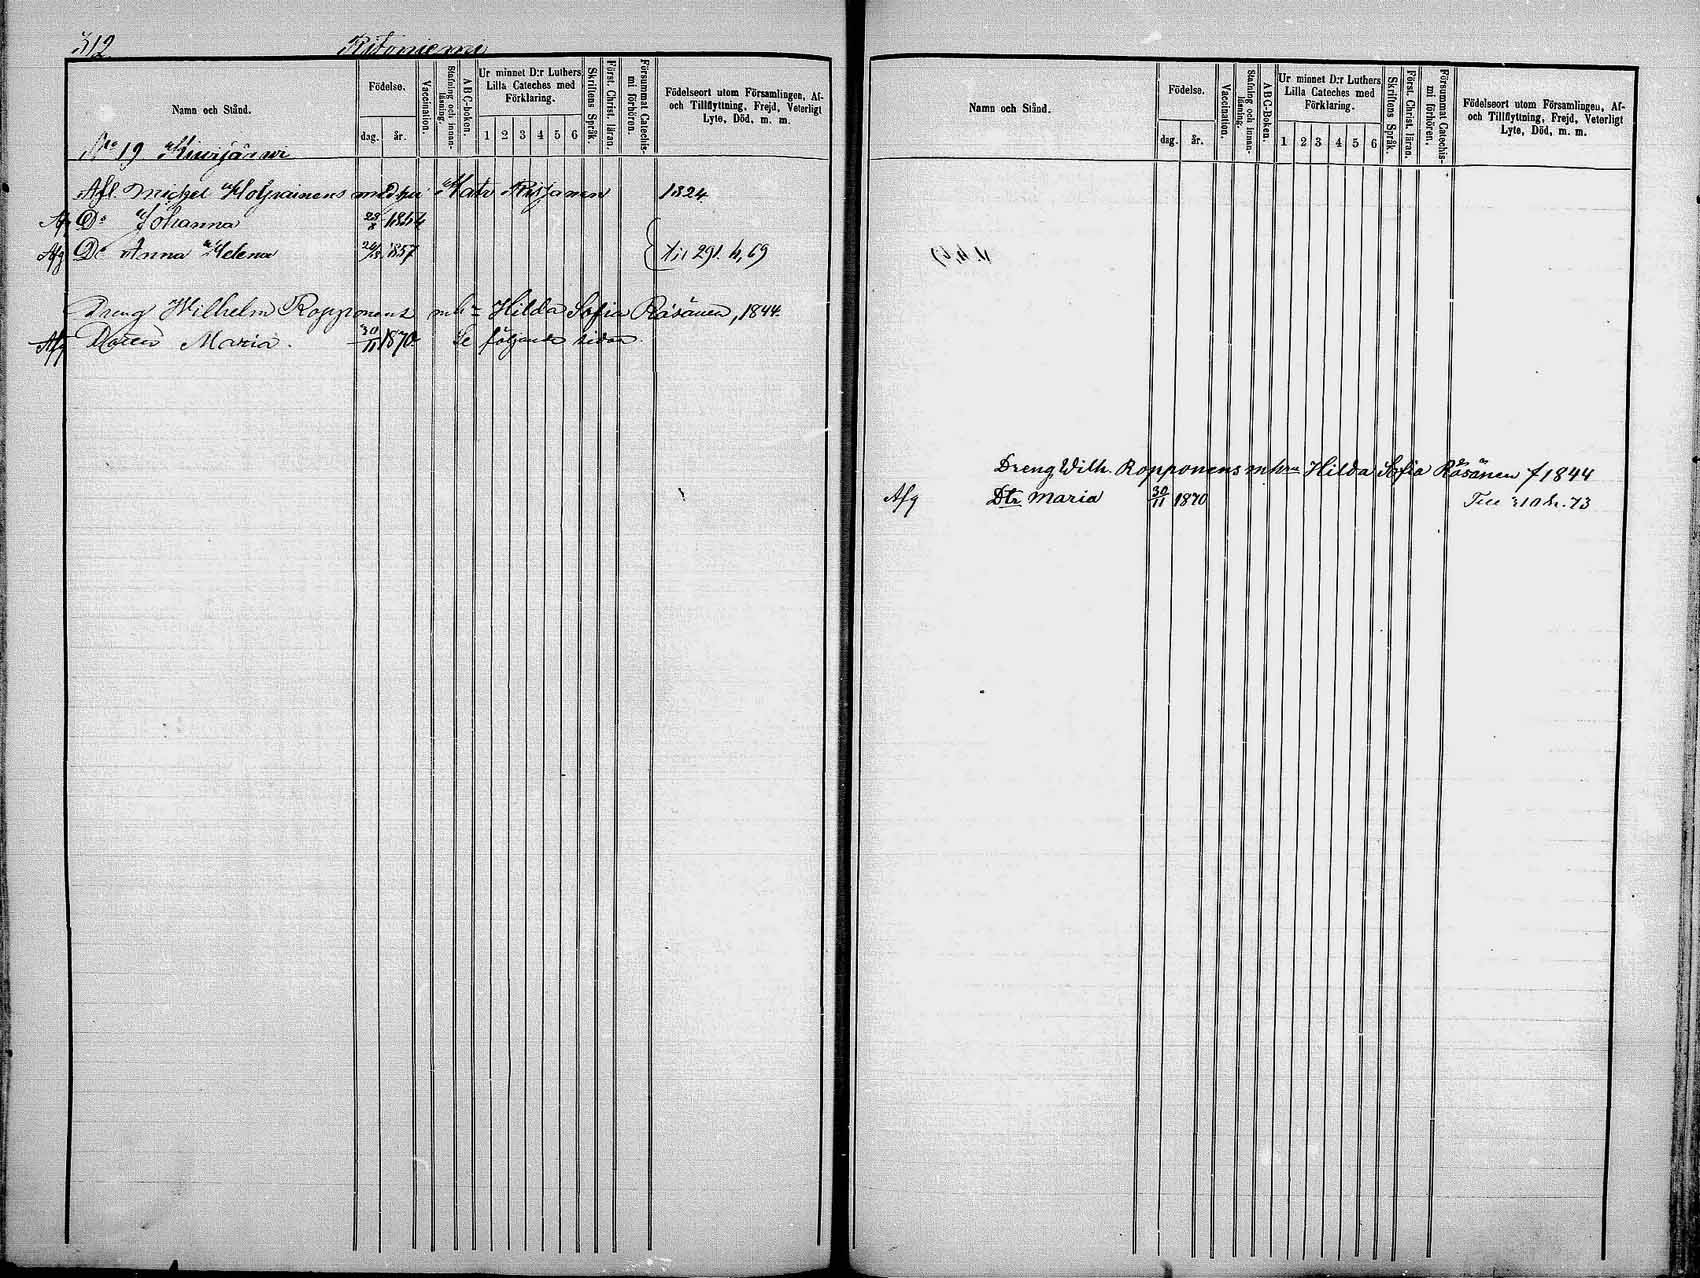 312 Ritoniemi
Namn och Stånd.
Födelse.
dag. år.
Vaccination.
Stafning och innan-läsning.
A B C-boken.
Ur minnet D:r Luthers Lilla Cateches med Förklaring.
1 2 3 4 5 6
Skriftens Språk.
Först. Christ. läran.
Försummat Catechis-mi förhören.
Födelseort utom Församlingen, Af- och Tillflyttning, Frejd, Veterligt Lyte, Död, m. m.
No 19 Kiurujärwi
Afl. Michel Holopainens med hu Katr. Räsjänen 1824
Afg Do Johanna 23/8 1864
Afg Do Anna Helena 24/3 1857 Till 291 h, 69
Dreng Wilhelm Ropponens mh= Hilda Sofia Räsänen, 1844.
Afg Dotter Maria. 30/11 1870 Se följande sidan.
Namn och Stånd.
Födelse.
dag. år.
Vaccination.
Stafning och innan-läsning.
A B C-Boken.
Ur minnet D:r Luthers Lilla Cateches med Förklaring.
1 2 3 4 5 6
Skriftens Språk.
Först. Christ. läran.
Försummat Catechis-mi förhören.
Födelseort utom Församlingen, Af- och Tillflyttning, Frejd, Veterligt Lyte, Död, m. m.
Dreng Wilh. Ropponens mhru Hilda Sofia Räsänen f 1844
Afg Dtr Maria 30/11 1870 Till 310 h. 73